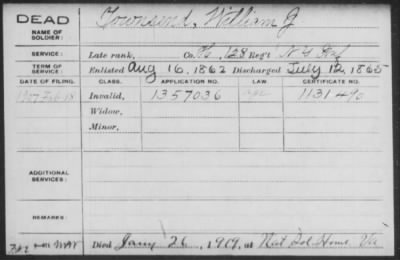 DEAD
NAME OF SOLDIER: Townsend, William J
SERVICE: Late rank, Co. 128 Reg't N.Y. Inf
TERM OF SERVICE: Enlisted Aug 16, 1862 Discharged July 12, 1865
DATE OF FILING. CLASS. APPLICATION NO. LAW. CERTIFICATE NO.
1907 Feb 18 Invalid, 1357036 1131490
Widow,
Minor,
ADDITIONAL SERVICES:
REMARKS:
Died Jany 26, 1909, at Nat Sol Home Va